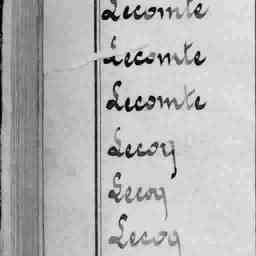 Lecomte
Lecomte
Lecomte
Lecoq
Lecoq
Lecoq